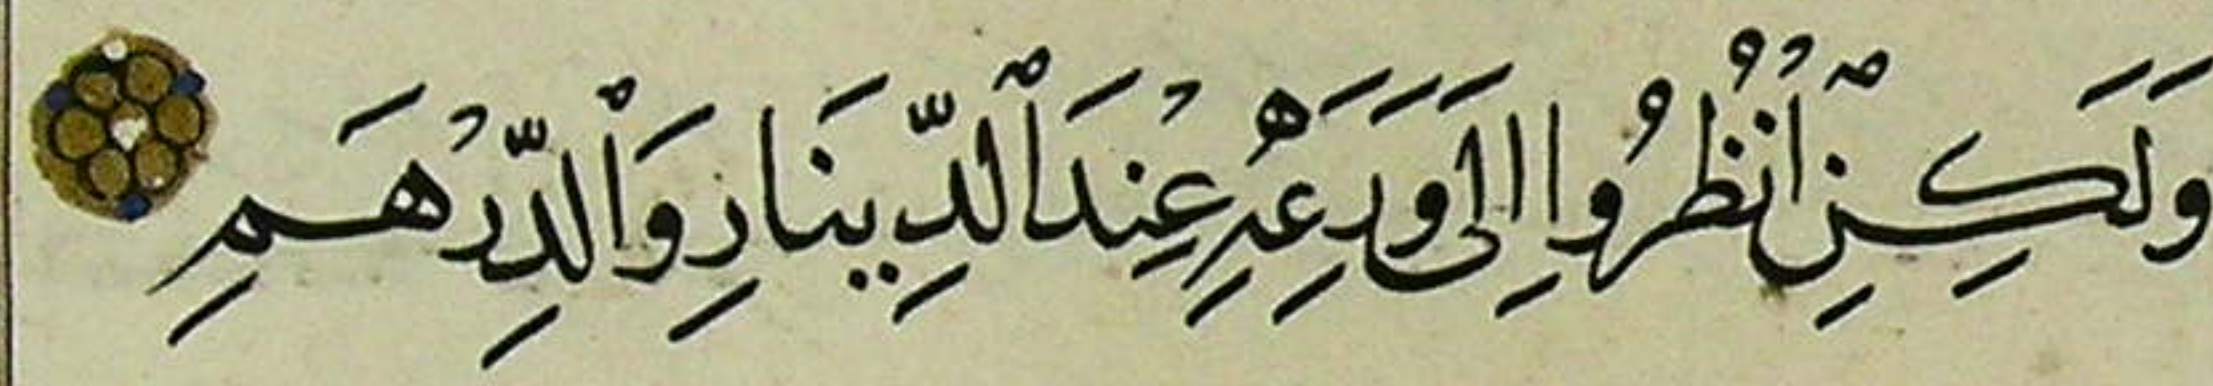 وَلَكِنِ ٱنْظُرُوا إِلَى وَرَعِهِ عِنْدَ ٱلدِّينَارِ وَٱلدِّرْهَمِ